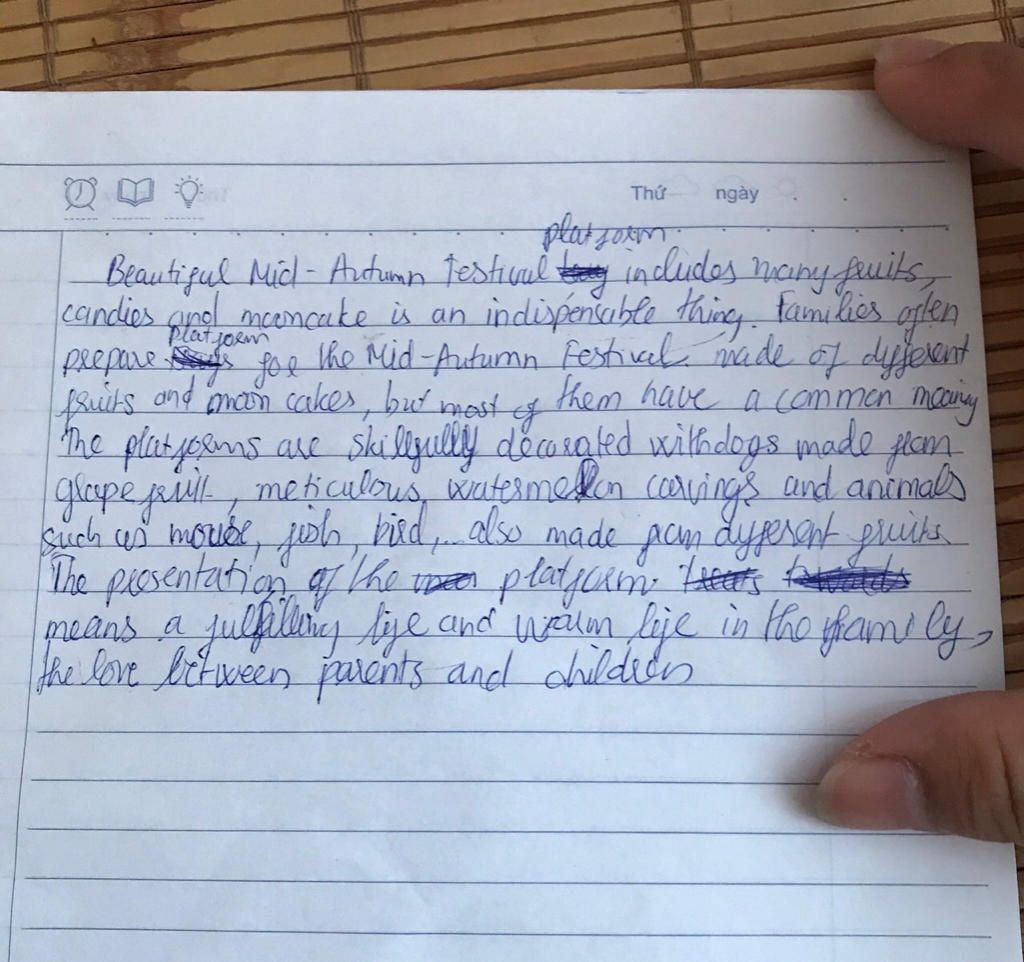 Thứ ngày
platform
Beautiful Mid-Autumn Festival includes many fruits,
candies and mooncake is an indispensable thing. Families often
platform
prepare for the Mid-Autumn Festival. made of different
fruits and moon cakes, but most of them have a common meaning
The platforms are skillfully decorated with dogs made from
grapefruit, meticulous watermelon carvings and animals
such as mouse, fish, bird,... also made from different fruits.
The presentation of the platform
means a fulfilling life and warm life in the family,
the love between parents and children